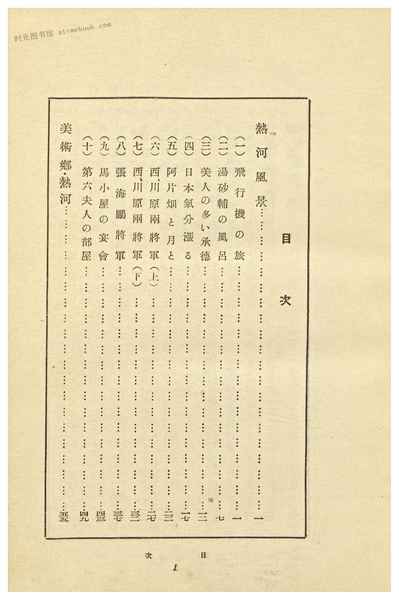 时光图书馆 sitmebook.com
目次
熱河風景……一
(一)飛行機の旅……一
(二)湯砂輔の風呂……七
(三)美人の多い承德……一三
(四)日本氣分漲る……一七
(五)阿片畑と月と……二三
(六)西、川原兩將軍(上)……二七
(七)西、川原兩將軍(下)……三二
(八)張海鵬將軍……三七
(九)馬小屋の宴會……四三
(十)第六夫人の部屋……四九
美術鄉・熱河……五五
目次
1